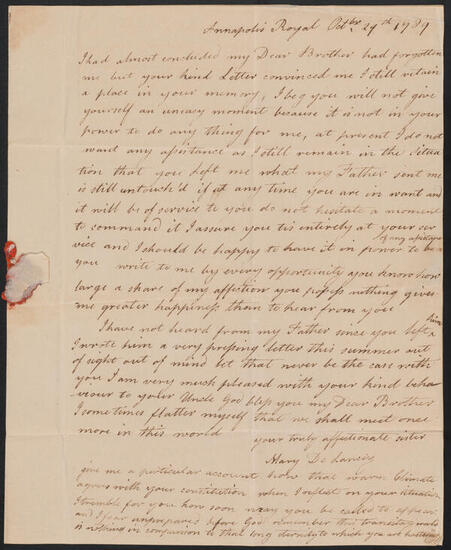 Annapolis Royal Octbr. 29th 1789
I had almost concluded my Dear Brother had forgotten
me but your kind Letter convinced me I still retain
a place in your memory, I beg you will not give
yourself an uneasy moment because it is not in your
power to do any thing for me, at present I do not
want any assistance as I still remain in the situa
tion that you left me what my Father sent me
is still untouch'd if at any time you are in want and
it will be of service to you do not hesitate a moment
to command it I assure you tis entirely at your ser
vice and I should be happy to have it in power to be
of any assistance
you write to me by every opportunity you know how
large a share of my affection you possess nothing gives
me greater happiness than to hear from you
I have not heard from my Father since you left
him
I wrote him a very pressing letter this summer out
of sight out of mind let that never be the case with
you I am very much pleased with your kind beha
viour to your Uncle God bless you my Dear Brother
I sometimes flatter myself that we shall meet once
more in this world your truly affectionate sister
Mary De Lancey
give me a particular account how that warm Climate
agrees with your constitution when I reflect on your situation
I tremble for you how soon may you be called to appear
and I fear unprepared before God remember this transitory world
is nothing in comparison to that long eternity to which you are hastening